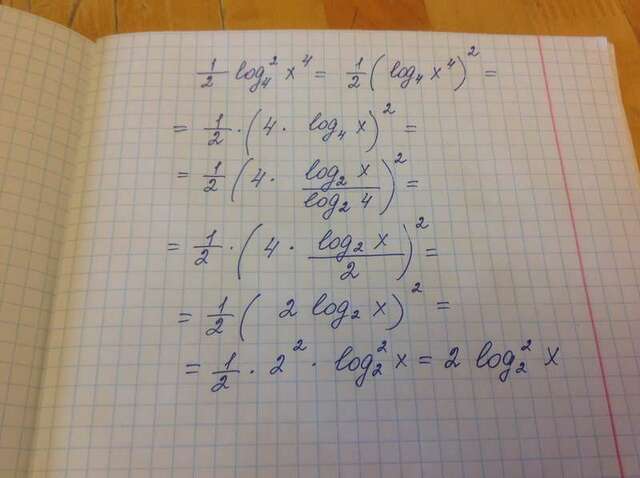 1/2 log₄² x⁴ = 1/2 (log₄ x⁴)² =
= 1/2 · (4 · log₄ x)² =
= 1/2 (4 · log₂ x / log₂ 4)² =
= 1/2 · (4 · log₂ x / 2)² =
= 1/2 (2 log₂ x)² =
= 1/2 · 2² · log₂² x = 2 log₂² x